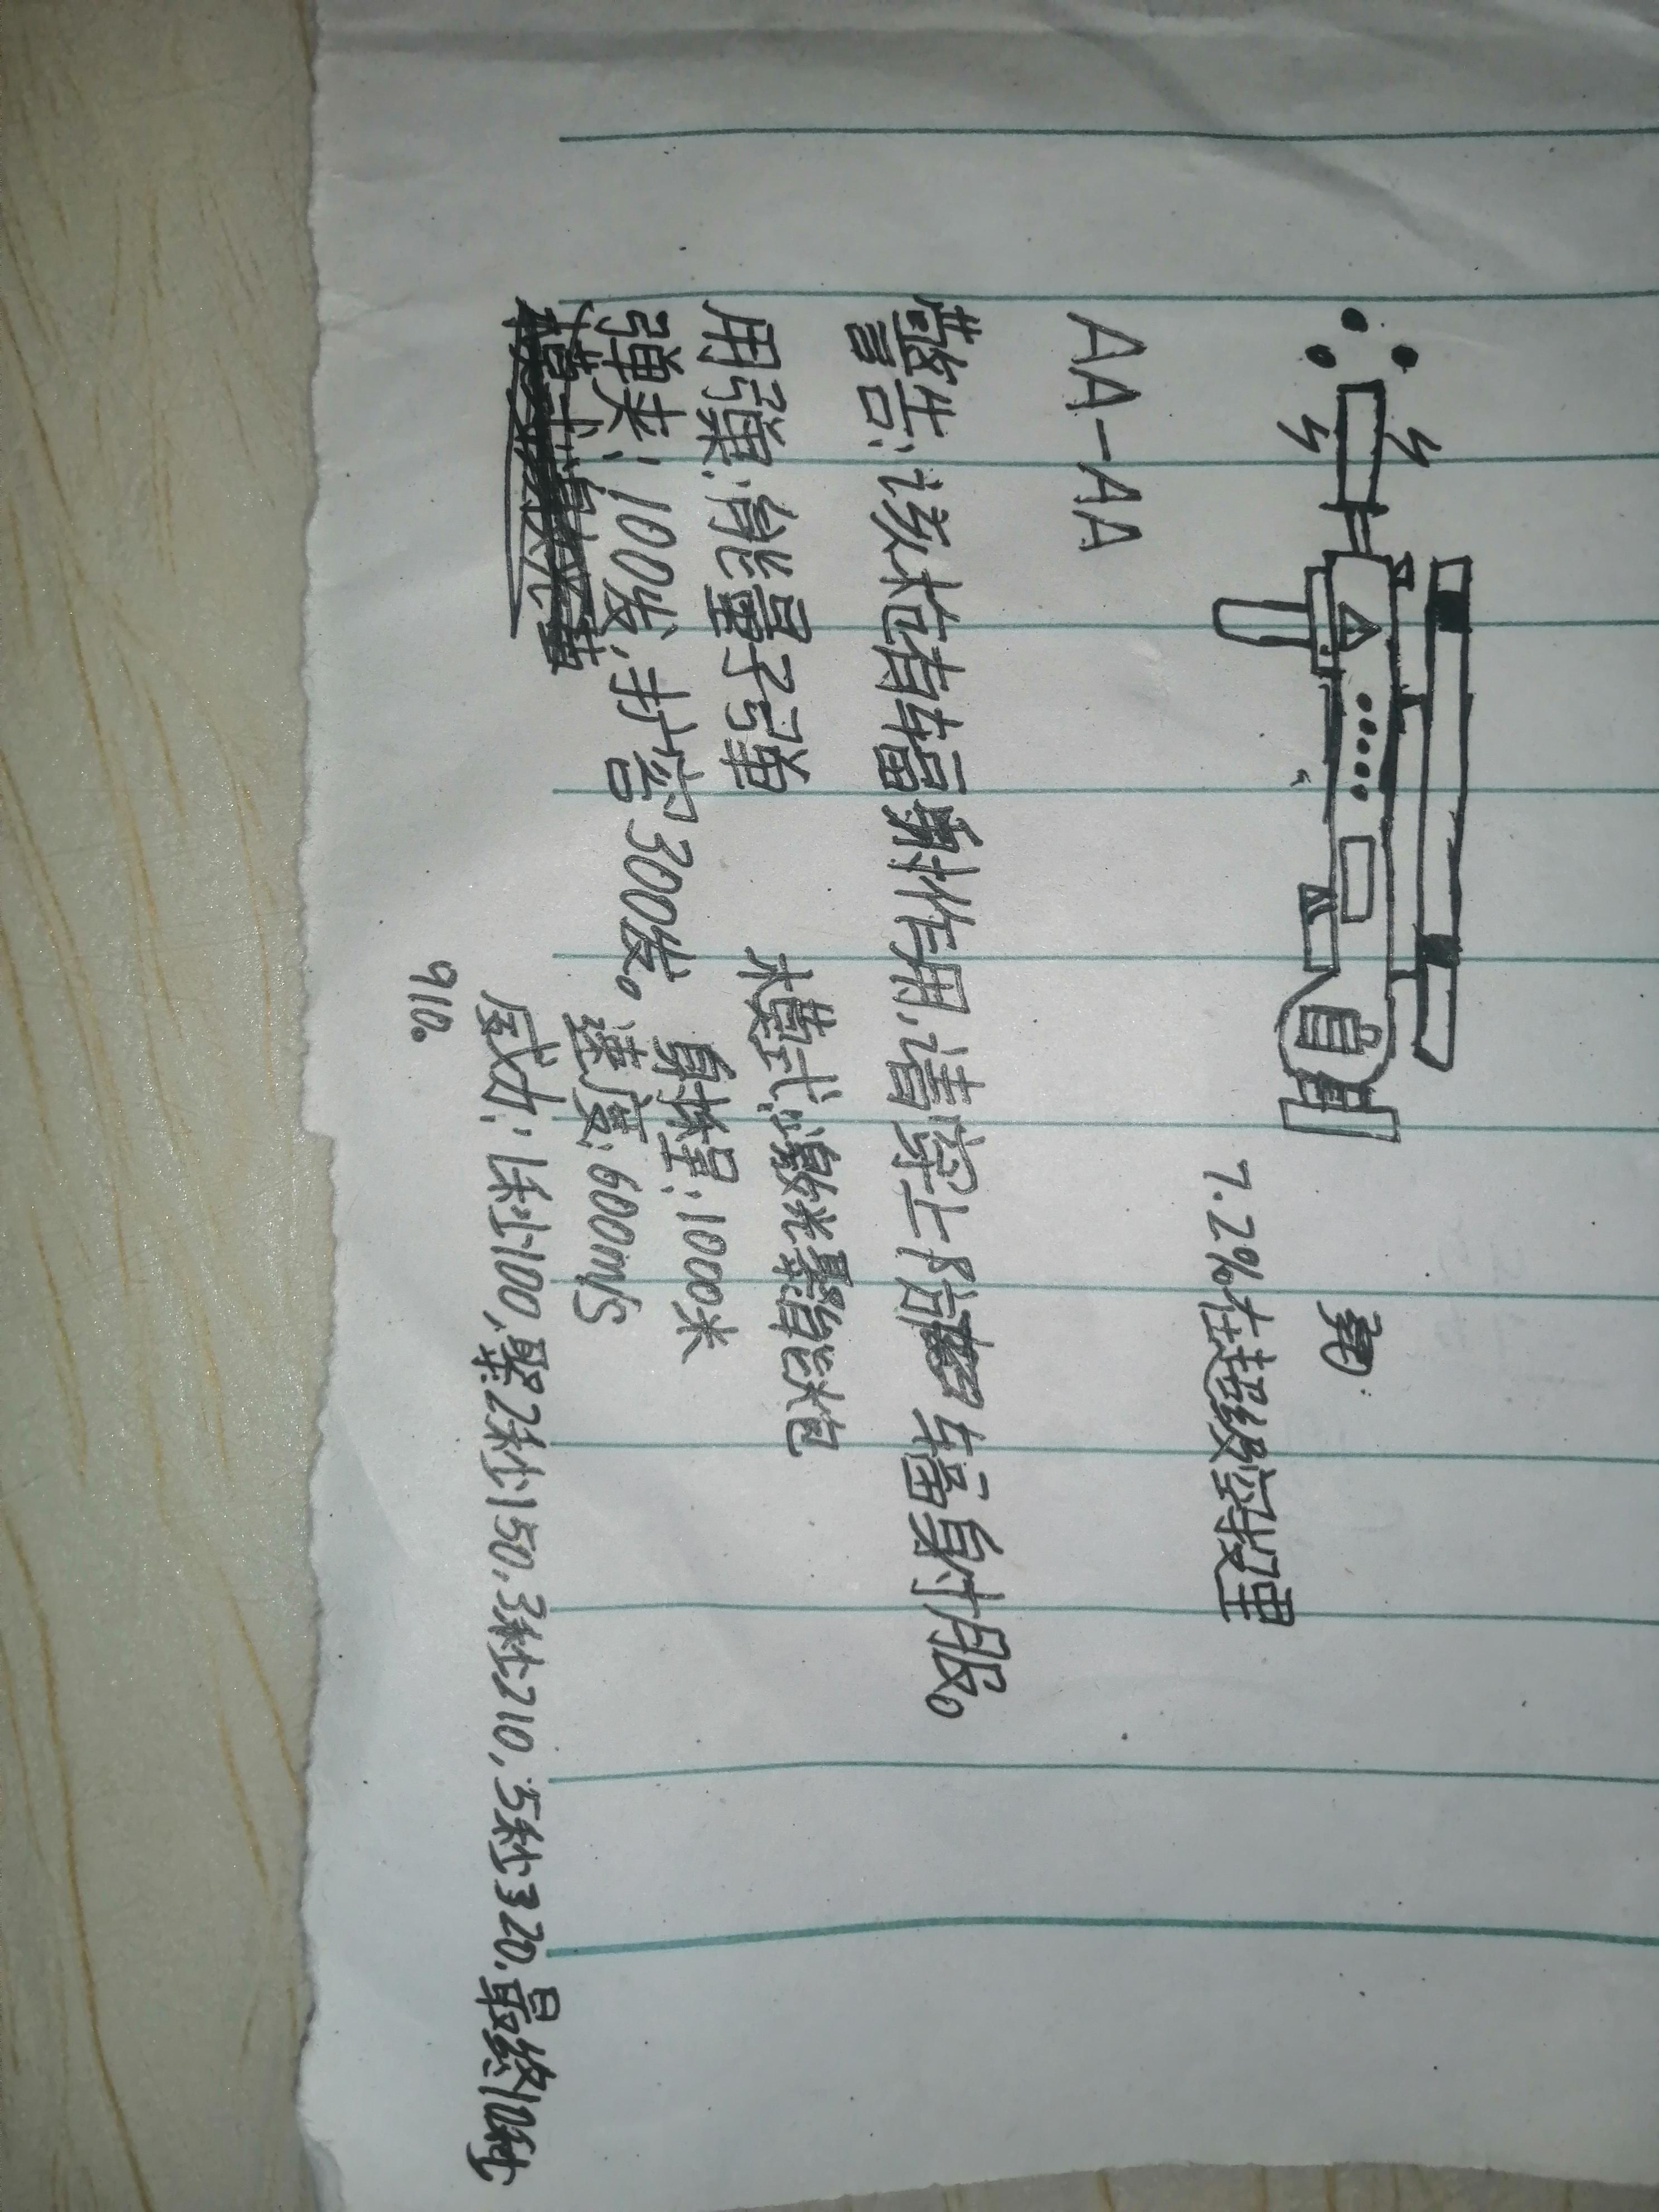 7.2%在超级空投里
AA-AA
警告:该枪有辐射作用,请穿上防辐射服。
用弹:能量子弹
模式:激光聚能炮
弹夹:100发,扩容300发。
射程:1000米
速度:600m/s
威力:1秒100,聚2秒150,3秒210,5秒320.最终10秒
910。